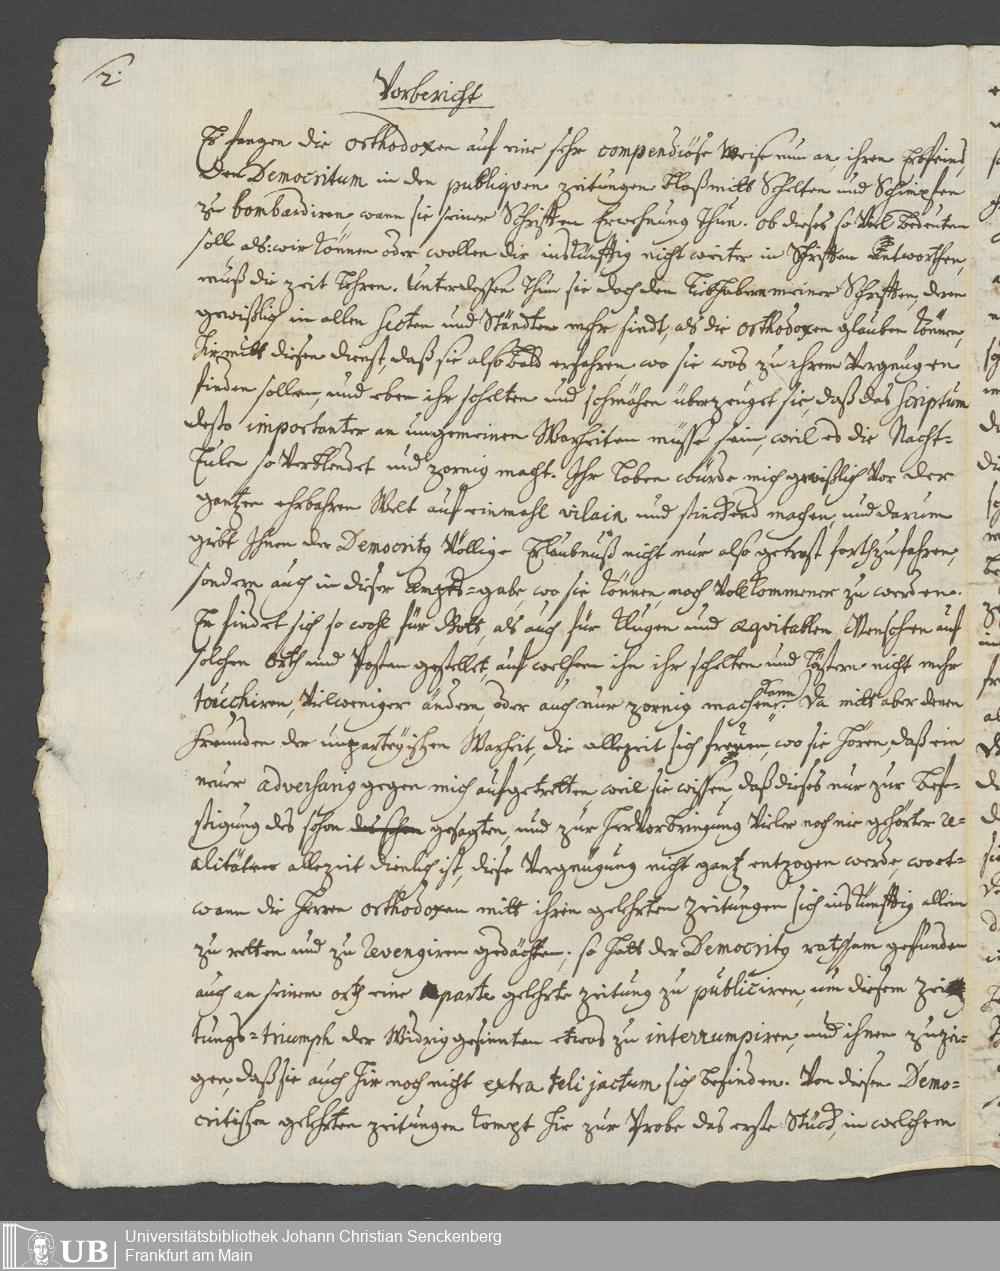 2.
Vorbericht
Es fangen die Orthodoxen auf eine sehr compendiöse Weise nun an, ihren Erbfeind,
den Democritum in den publiqven Zeitungen bloß mitt Schelten und Schimpfen
zu bombardiren wann sie seiner Schrifften Erwehnung thun. Ob dieses so Viel bedeuten
soll als: wir können oder wollen dir inskünfftig nicht weiter in Schrifften Antworthen,
muß die Zeit lehren. Unterdeßen thun sie doch den Liebhabern meiner Schrifften, deren
gewißlich in allen Secten und Ständten mehr sindt, als die Orthodoxen glauben können,
hirmitt diesen Dienst, daß sie also bald erfahren, wo sie was zu ihrem Vergnugen
finden sollen, und eben ihr schelten und schmähen überzeuget sie, daß das Scriptum
desto importanter an ungemeinen Warheiten müsse sein, weil es die Nacht=
Eulen so Verblendet und zornig macht. Ihr Loben würde mich gewißlich Vor der
gantzen ehrbahren Welt auf einmahl vilain und stinckend machen, und darum
gibt Ihnen der Democritus Völlige Erlaubnuß nicht nur also getrost forthzufahren,
sondern auch in dieser Ampts=gabe, wo sie können, noch Vollkommener zu werden.
Er findet sich so wohl für Gott, als auch für klugen und æqvitablen Menschen auf
solchen Orth und Posten gestellet, auf welchem ihn ihr schelten und lästern nicht mehr
touchiren, Vielweniger ändern, oder auch nur zornig machen kann. Da mitt aber denen
Freunden der unparteyischen Warheit, die allezeit sich freuen, wo sie hören, daß ein
neuer adversarius gegen mich aufgetretten, weil sie wissen, daß dieses nur zur Befe-
stigung des schon gesagten, und zur Hervorbringung Vieler noch nie gehörter Re-
alitäten allezeit dienlich ist, diese Vergnügung nicht gantz entzogen werde,
wann die Herren Orthodoxen mitt ihren gelehrten Zeitungen sich inskünfftig allein
zu retten und zu Revengiren gedächten; so hatt der Democritus rathsam gefunden
auch an seinem orth eine aparte gelehrte Zeitung zu publiciren, um diesem Zei-
tungs=triumph der Widriggesinnten etwas zu interrumpiren, und ihnen zuzei-
gen, daß sie auch hir noch nicht extra teli jactum sich befinden. Von diesen Demo=
critischen gelehrten Zeitungen kompt hir zur Probe das erste Stück, in welchem
UB
Universitätsbibliothek Johann Christian Senckenberg
Frankfurt am Main